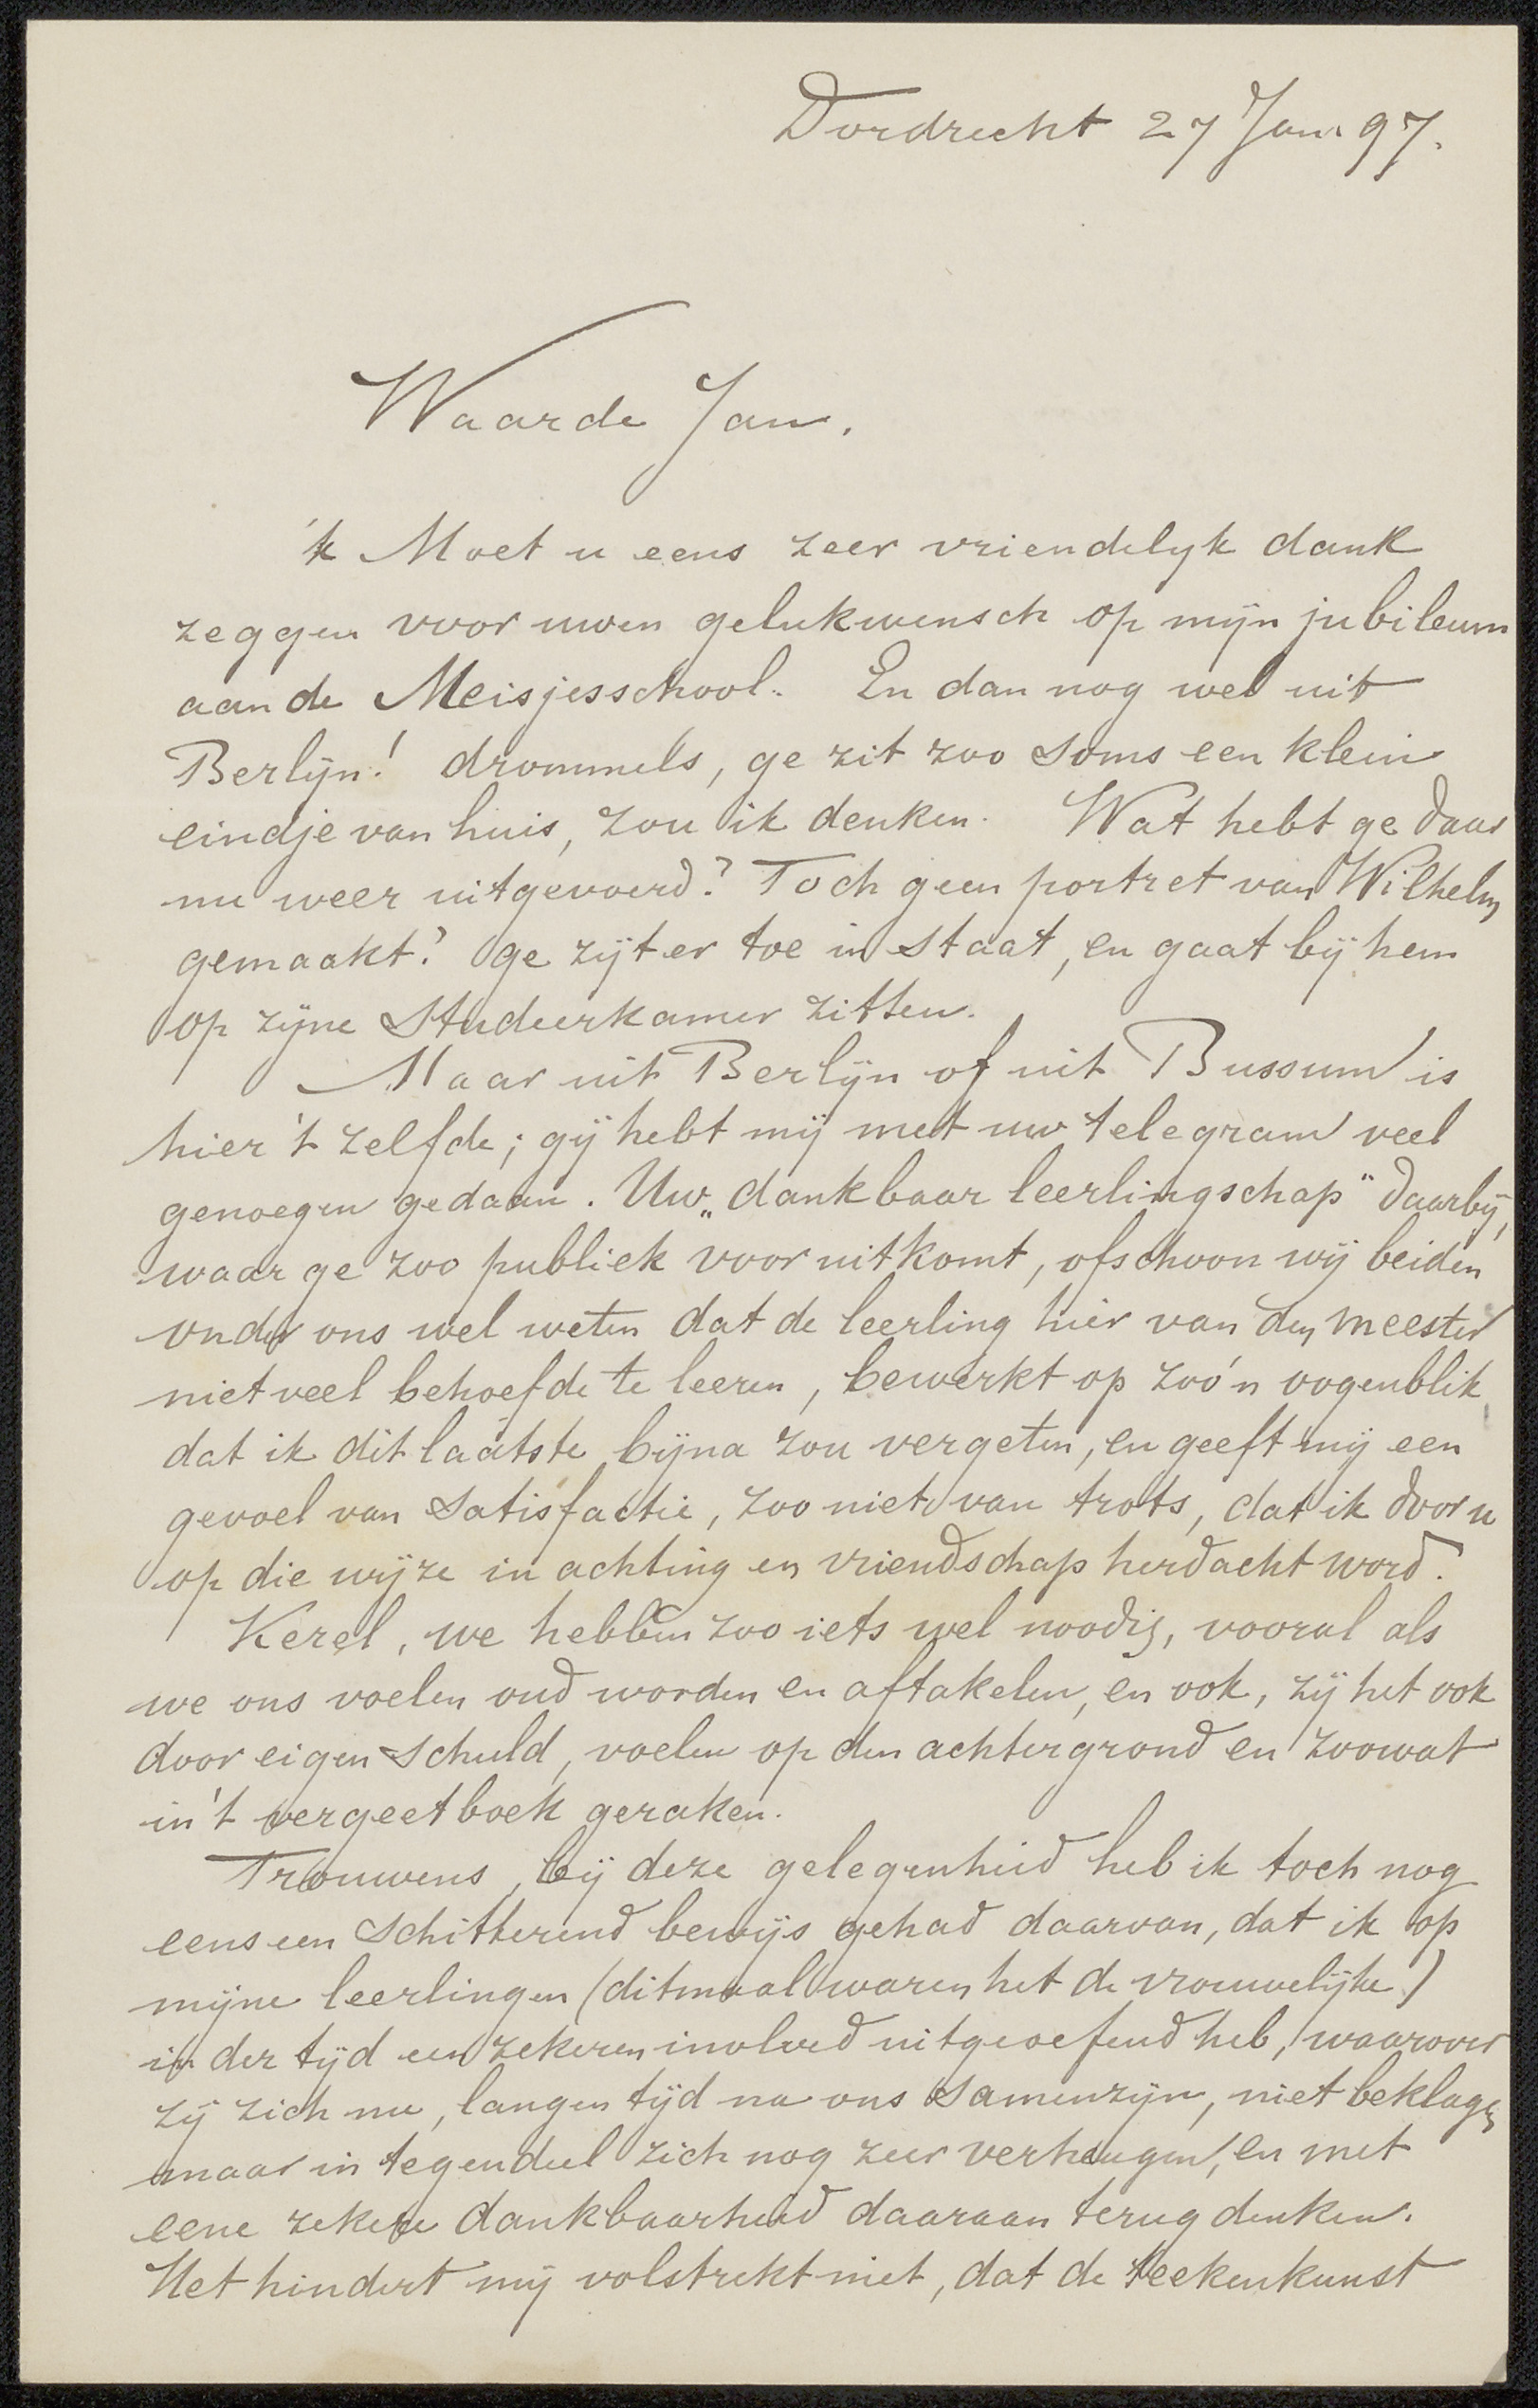 Dordrecht 27 Jan. 97.
Waarde Jan.
'k Moet u eens zeer vriendelyk dank
zeggen voor uwen gelukwensch op mijn jubileum
aan de Meisjesschool. En dan nog wel uit
Berlijn! drommels, ge zit zoo soms een klein
eindje van huis, zou ik denken. Wat hebt ge daar
nu weer uitgevoerd? Toch geen portret van Wilhelm
gemaakt? ge zijt er toe in staat, en gaat bij hem
op zijne Studeerkamer zitten.
Maar uit Berlijn of uit Bussum is
hier 't zelfde; gij hebt mij met uw telegram veel
genoegen gedaan. Uw „dankbaar leerlingschap" daarbij,
waar ge zoo publiek voor uitkomt, ofschoon wij beiden
onder ons wel weten dat de leerling hier van den meester
niet veel behoefde te leeren, bewerkt op zoo'n oogenblik
dat ik dit laatste bijna zou vergeten, en geeft mij een
gevoel van satisfactie, zoo niet van trots, dat ik door u
op die wijze in achting en vriendschap herdacht word.
Kerel, we hebben zoo iets wel noodig, vooral als
we ons voelen oud worden en aftakelen, en ook, zij het ook
door eigen schuld, voelen op den achtergrond en zoowat
in 't vergeetboek geraken.
Trouwens, bij deze gelegenheid heb ik toch nog
eens een schitterend bewijs gehad daarvan, dat ik op
mijne leerlingen (ditmaal waren het de vrouwelijke)
in der tijd een zekeren invloed uitgeoefend heb, waarover
zij zich nu, langen tijd na ons samenzijn, niet beklagen
maar in tegendeel zich nog zeer verheugen, en met
eene zekere dankbaarheid daaraan terug denken.
Het hindert mij volstrekt niet, dat de teekenkunst